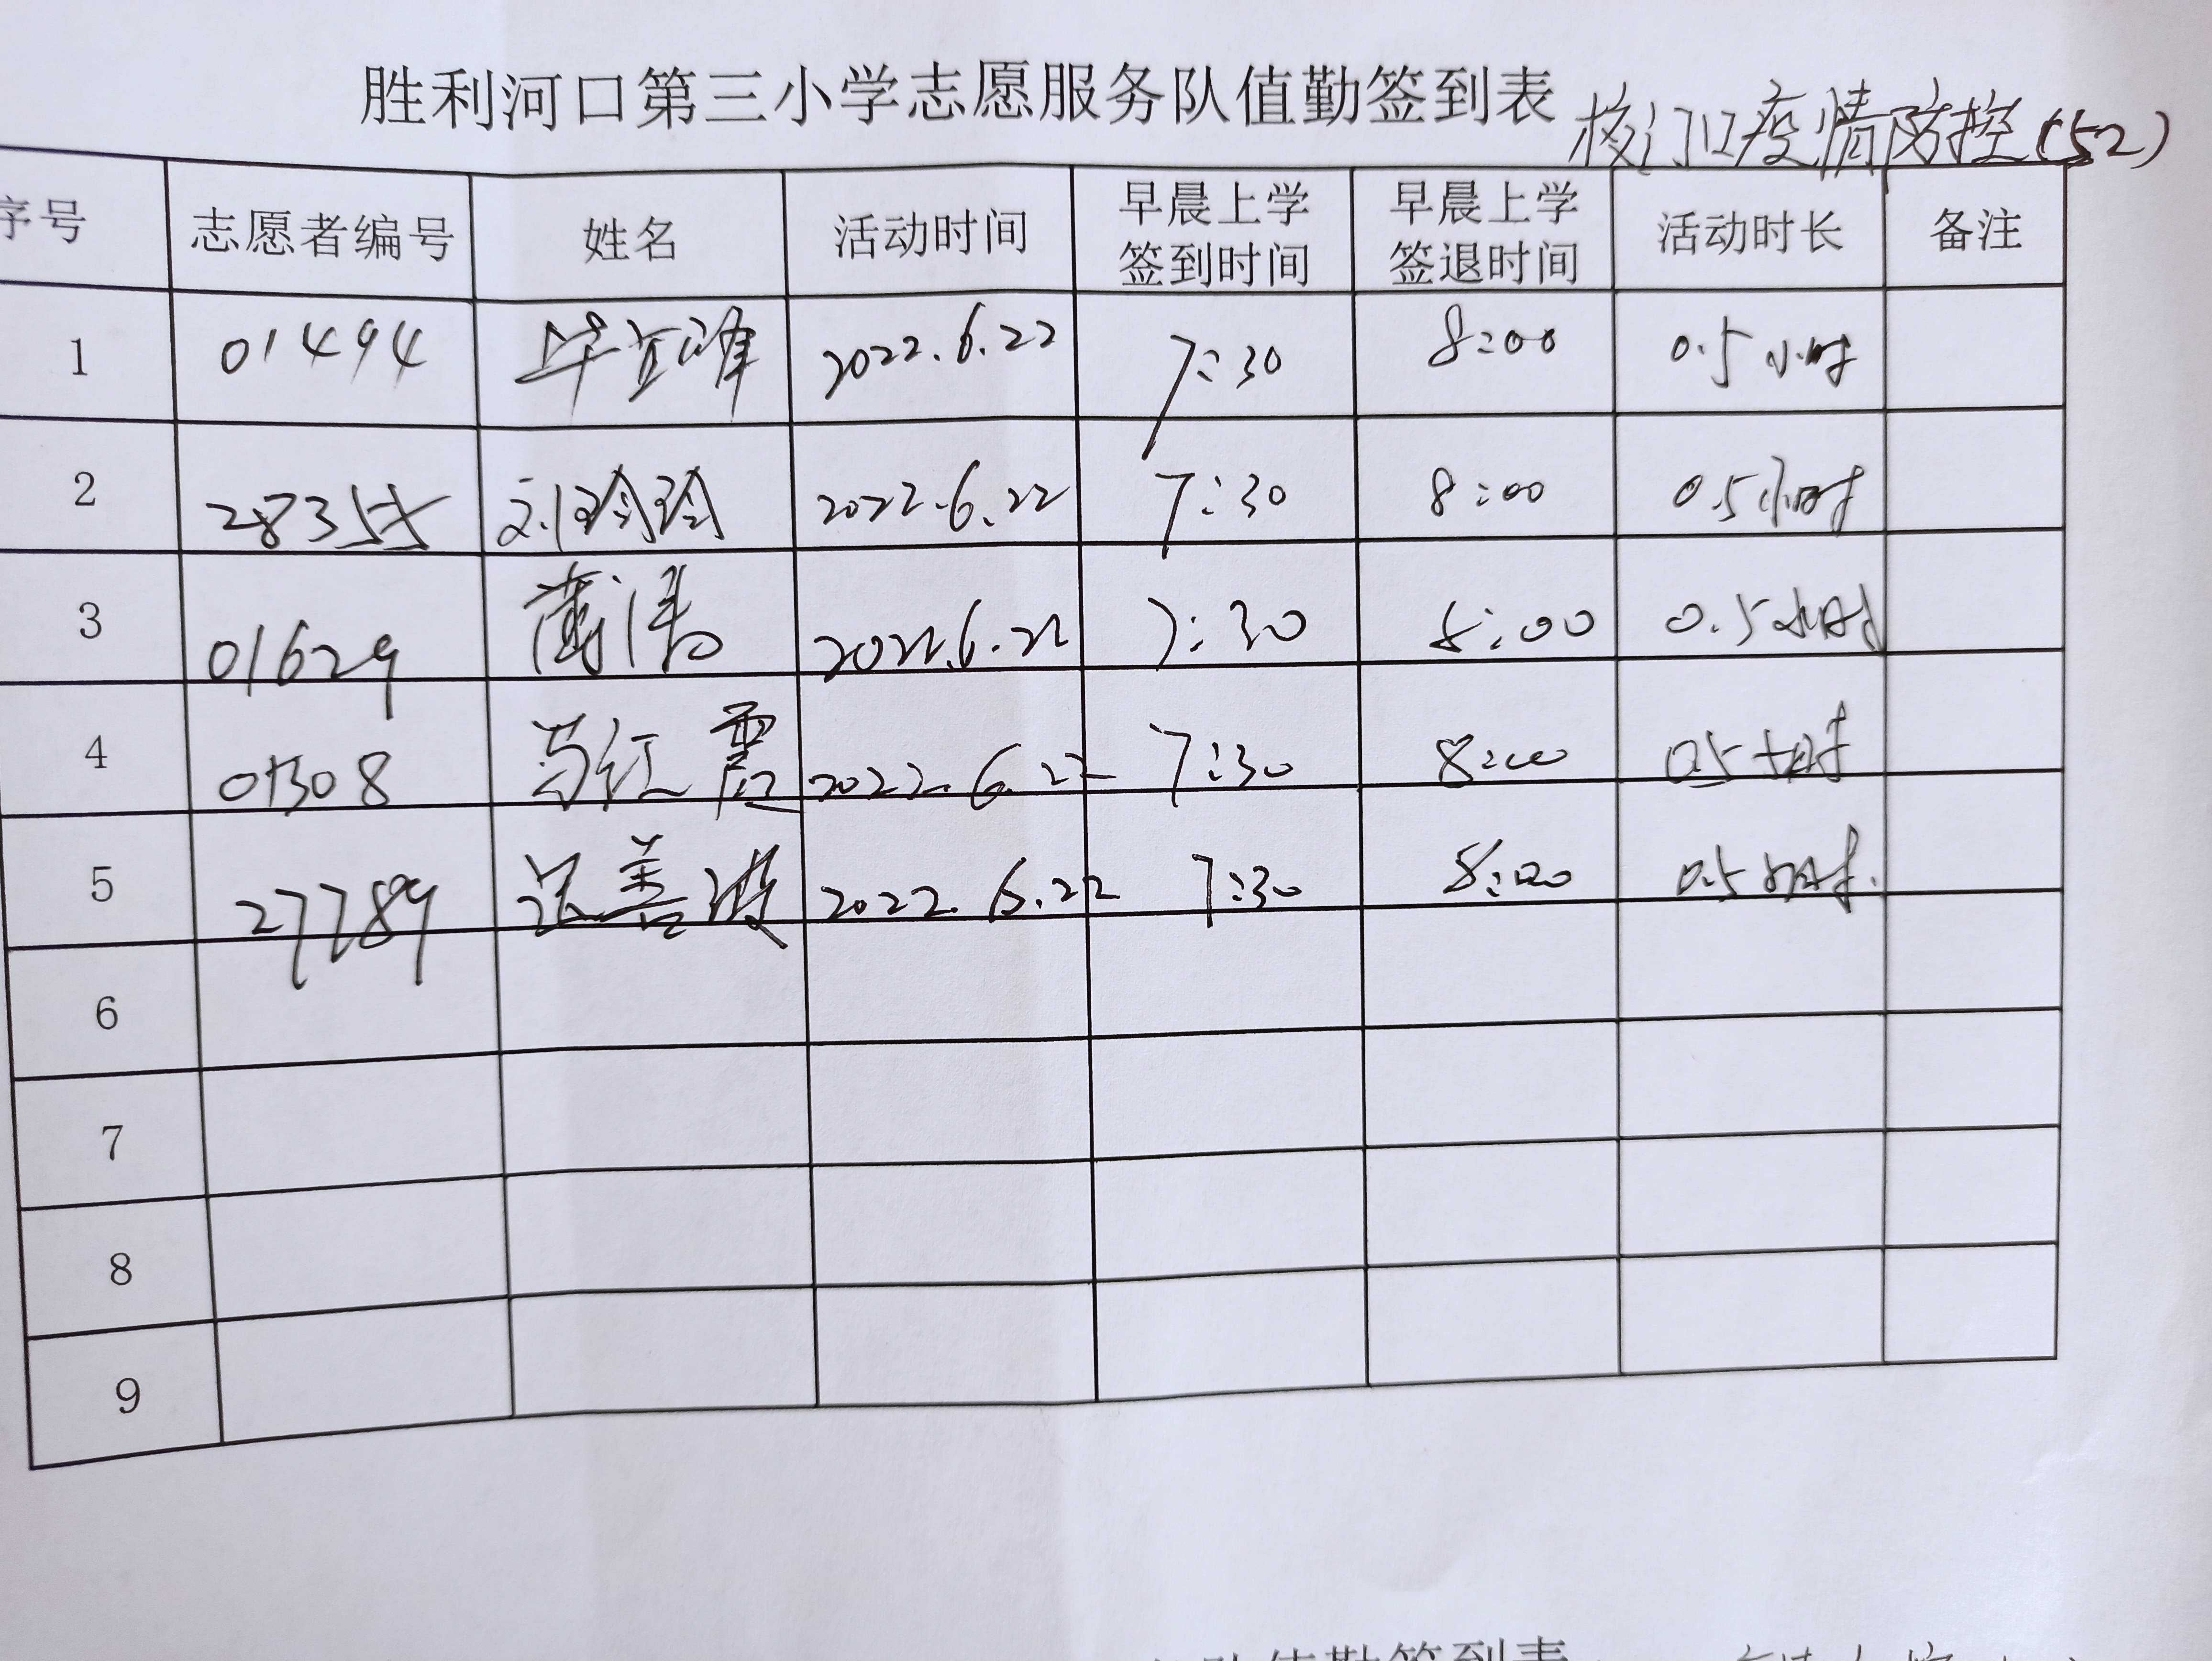 胜利河口第三小学志愿服务队值勤签到表 校门口疫情防控(52)
序号 志愿者编号 姓名 活动时间 早晨上学签到时间 早晨上学签退时间 活动时长 备注
1 01494 2022.6.22 7:30 8:00 0.5小时
2 28355 刘玲玲 2022.6.22 7:30 8:00 0.5小时
3 01629 2022.6.22 7:30 8:00 0.5小时
4 01308 马红霞 2022.6.22 7:30 8:00 0.5小时
5 27789 善波 2022.6.22 7:30 8:00 0.5小时
6
7
8
9
队值勤签到表